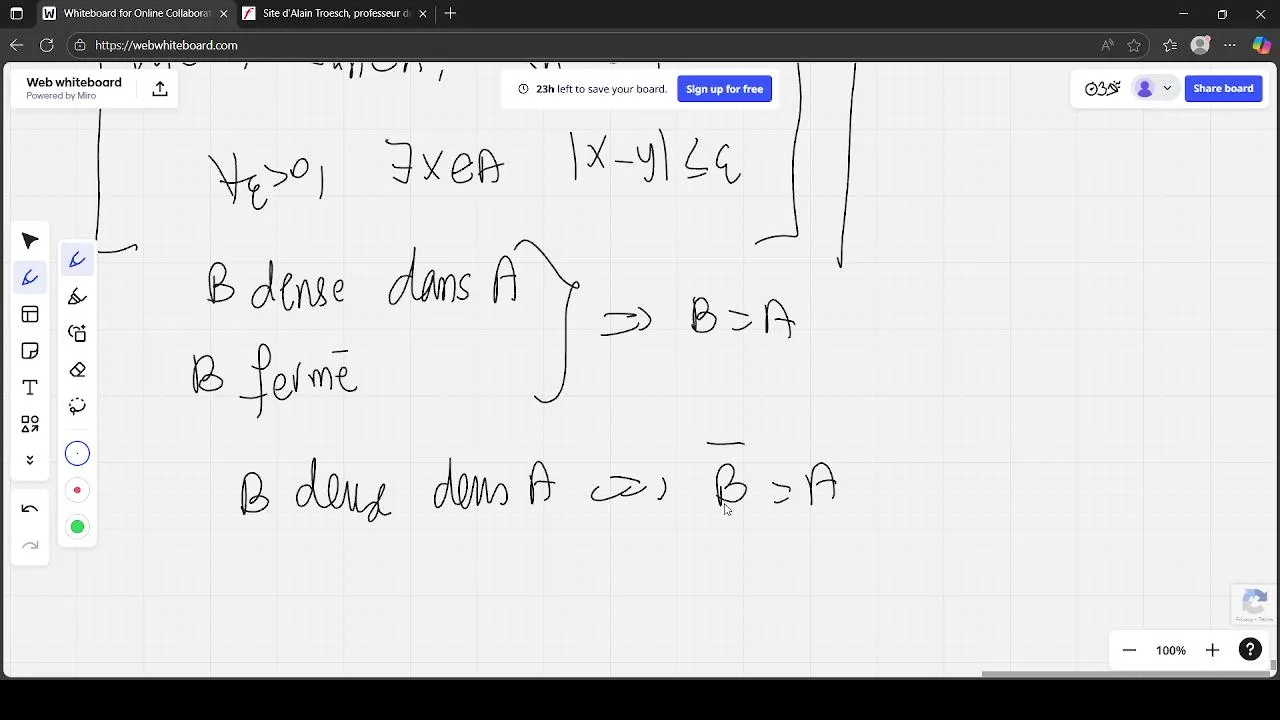 Whiteboard for Online Collaborat
Site d'Alain Troesch, professeur de
https://webwhiteboard.com
Web whiteboard
Powered by Miro
23h left to save your board.
Sign up for free
Share board
∀ε>0, ∃x∈A |x-y| ≤ ε
B dense dans A
⇒ B = A
B fermé
B dense dans A ⇔ B̅ = A
Privacy - Terms
100%